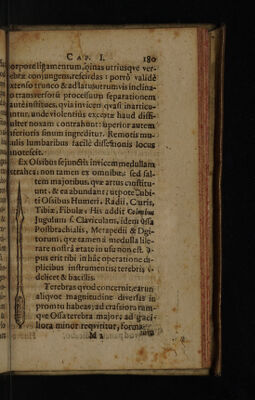 CAP. I. 180
corpore ligamentum, spinas utriusque ver-
tebræ conjungens, rescindas: porrò validè
extenso trunco & ad latus utrumvis inclina-
to transversoriū processuum separationem
autè institues, quia invicem quasi inarticu-
lantur, unde violentiùs excepta haud diffi-
culter noxam contrahunt: superior autem
inferioris sinum ingreditur. Remotis mu-
sculis lumbaribus facilè dissectionis locus
innotescit.
Ex Ossibus sejunctis invicem medullam
extrahes, non tamen ex omnibus: sed sal-
tem majoribus, quæ artus constitu-
unt, & ea abundant, ut pote Cubi-
ti Ossibus Humeri, Radii, Curis,
Tibiæ, Fibulæ. His addit Columbus
Jugulum s. Claviculam, idem ossa
Postbrachialis, Metapedii & Digi-
torum, quæ tamen à medulla libe-
rare nostrâ ætate in usu non est. O-
pus erit tibi in hâc operatione du-
plicibus instrumentis; terebris vi-
delicet & bacillis.
Terebras quod concernit, earum
aliquot magnitudine diversas in
promtu habeas; ad crassiora nam-
que Ossa terebra major, ad graci-
liora minor requiritur, forma
M 2